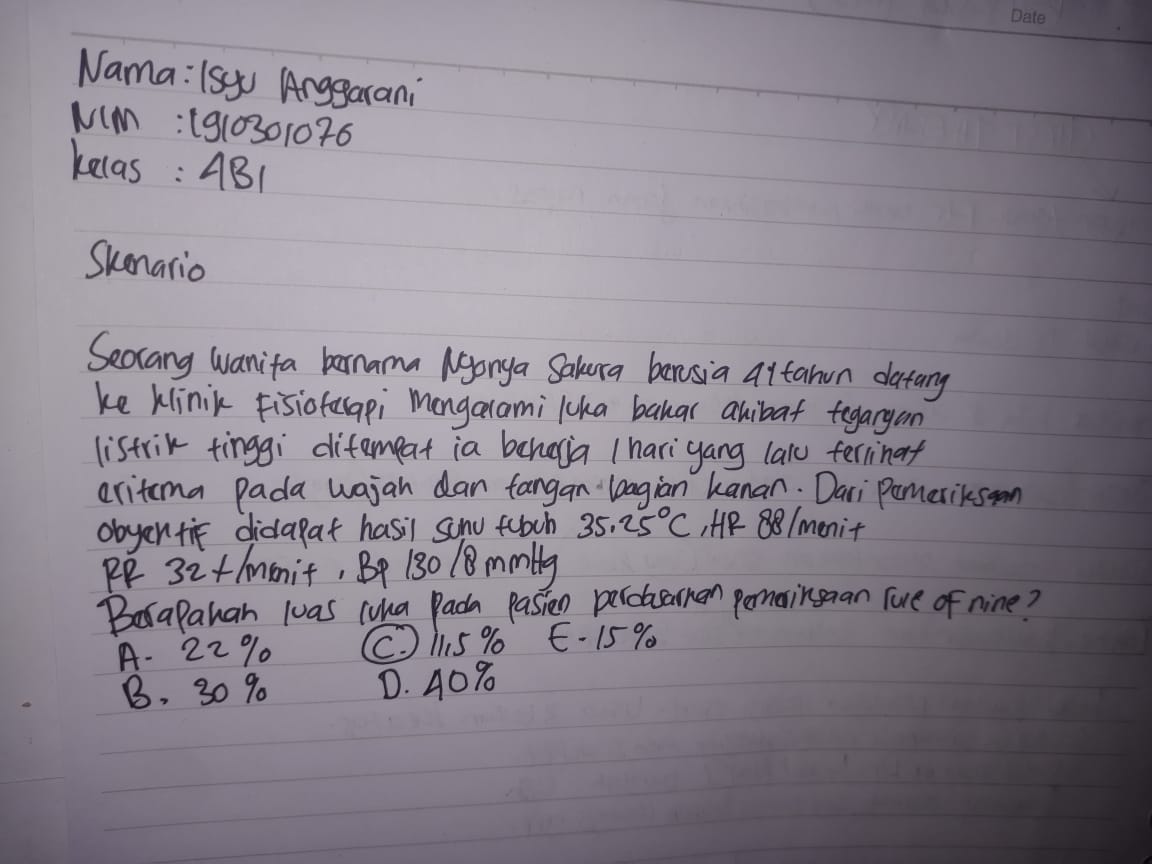 Date
Nama : Isyu Anggarani
NIM : 1910301076
kelas : 4B1
Skenario
Seorang wanita bernama Nyonya Sakura berusia 41 tahun datang
ke klinik Fisioterapi Mengalami luka bakar akibat tegangan
listrik tinggi ditempat ia bekerja 1 hari yang lalu terlihat
eritema pada wajah dan tangan bagian kanan. Dari Pemeriksaan
obyektif didapat hasil suhu tubuh 35.25°C, HR 88/menit
RR 32x/menit, BP 130/8 mmHg
Berapakah luas luka pada pasien berdasarkan pemeriksaan rule of nine?
A. 22% C. 11,5% E. 15%
B. 30% D. 40%